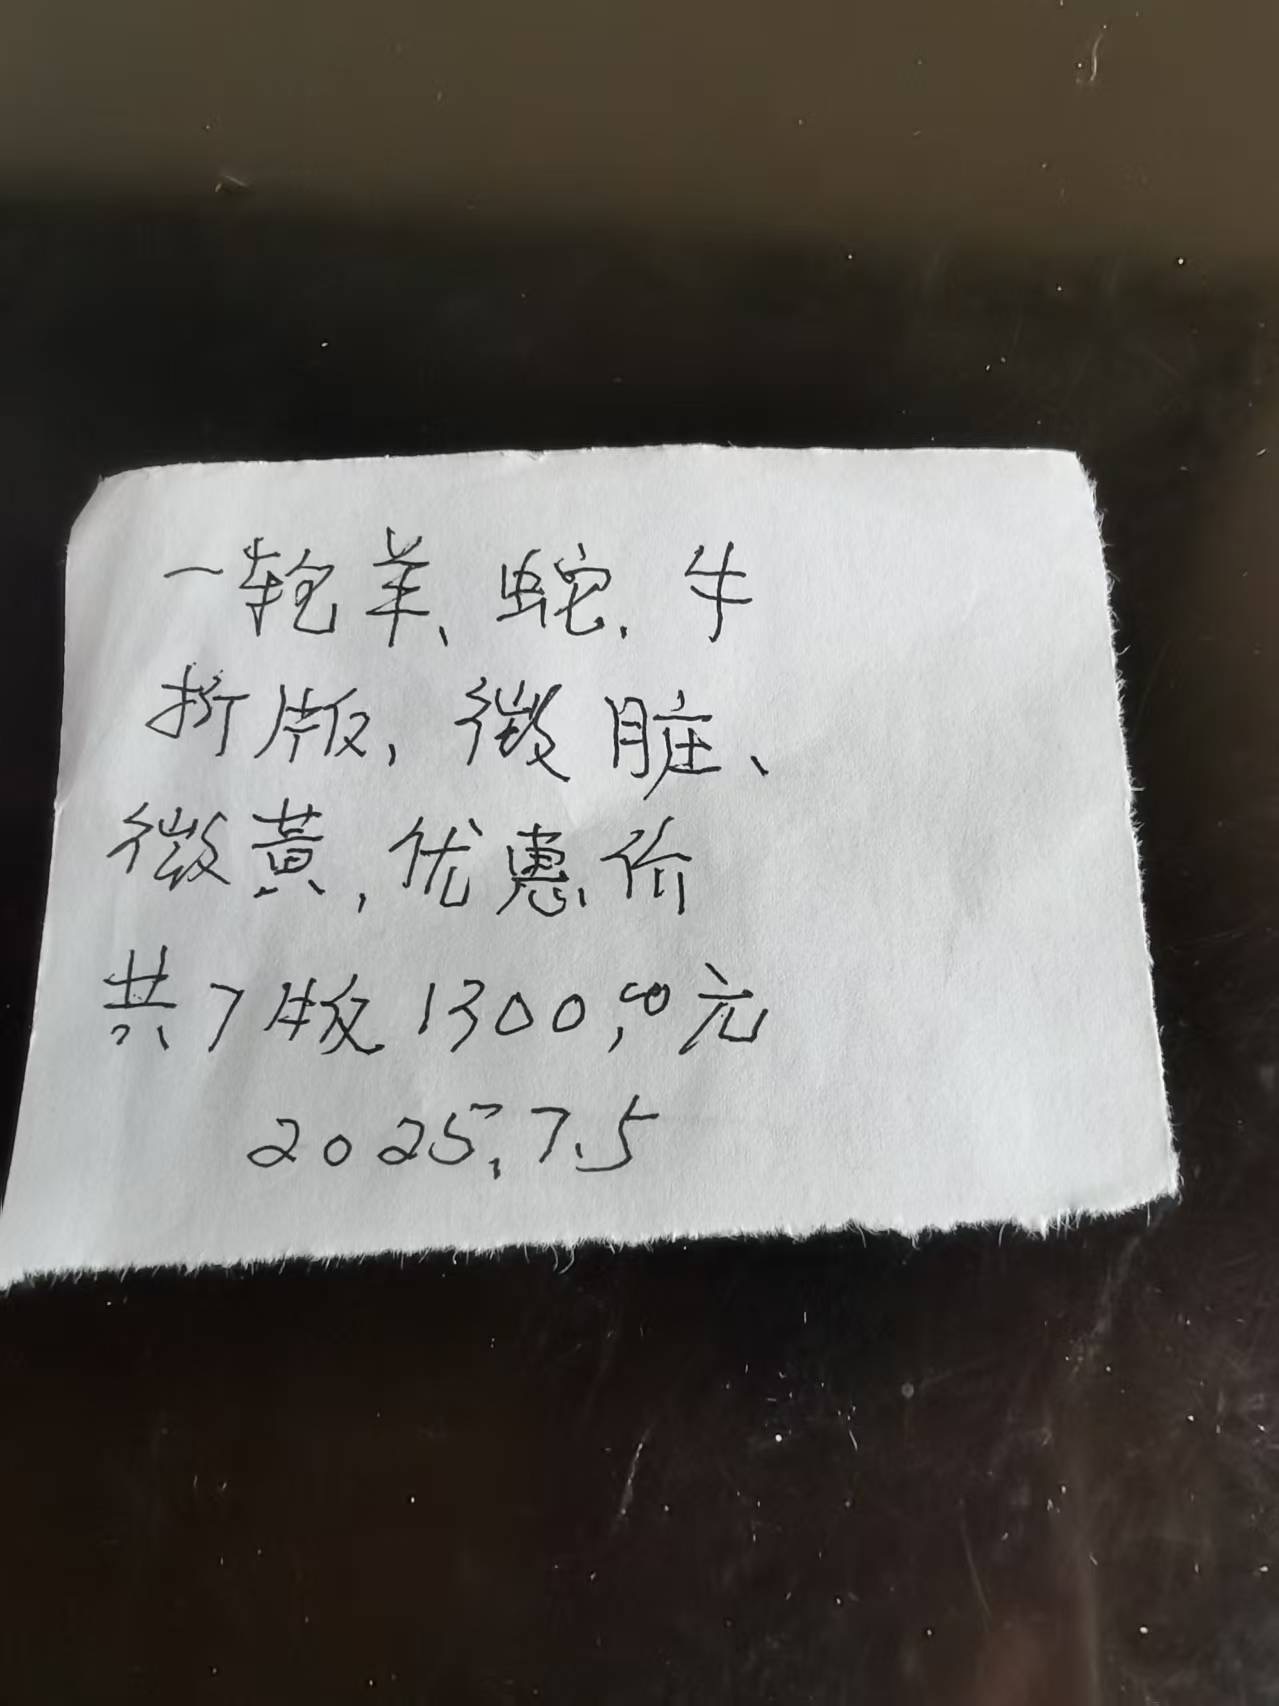 一轮羊、蛇、牛
折版，微脏、
微黄，优惠价
共7版1300.00元
2025.7.5